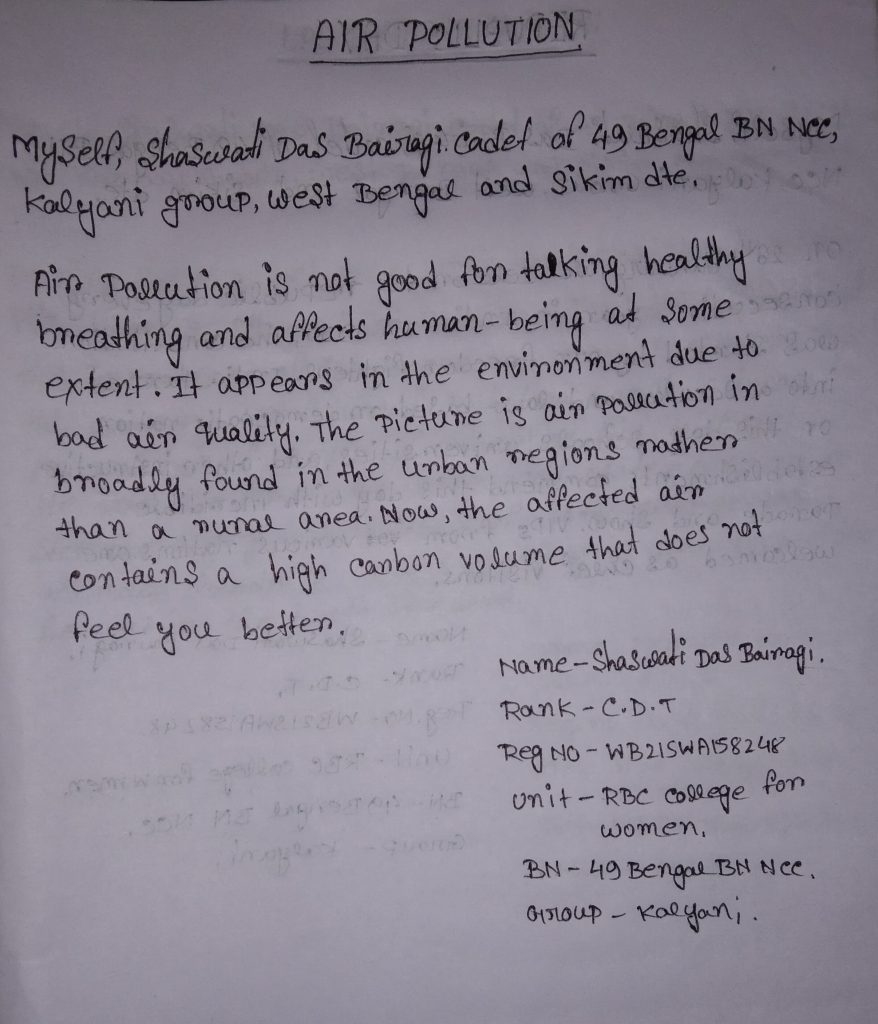 AIR POLLUTION
Myself, Shaswati Das Bairagi. Cadet of 49 Bengal BN NCC,
Kalyani group, West Bengal and Sikim dte.
Air Pollution is not good for talking healthy
breathing and affects human-being at some
extent. It appears in the environment due to
bad air quality. The Picture is air pollution in
broadly found in the urban regions rather
than a rural area. Now, the affected air
contains a high carbon volume that does not
feel you better.
Name - Shaswati Das Bairagi.
Rank - C.D.T
Reg NO - WB21SWA158248
Unit - RBC college for
women.
BN - 49 Bengal BN NCC.
Group - Kalyani.